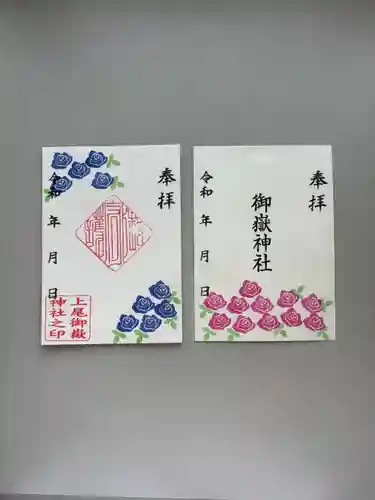 奉拝
令和 年 月 日
上尾御嶽
神社之印
奉拝
御嶽神社
令和 年 月 日